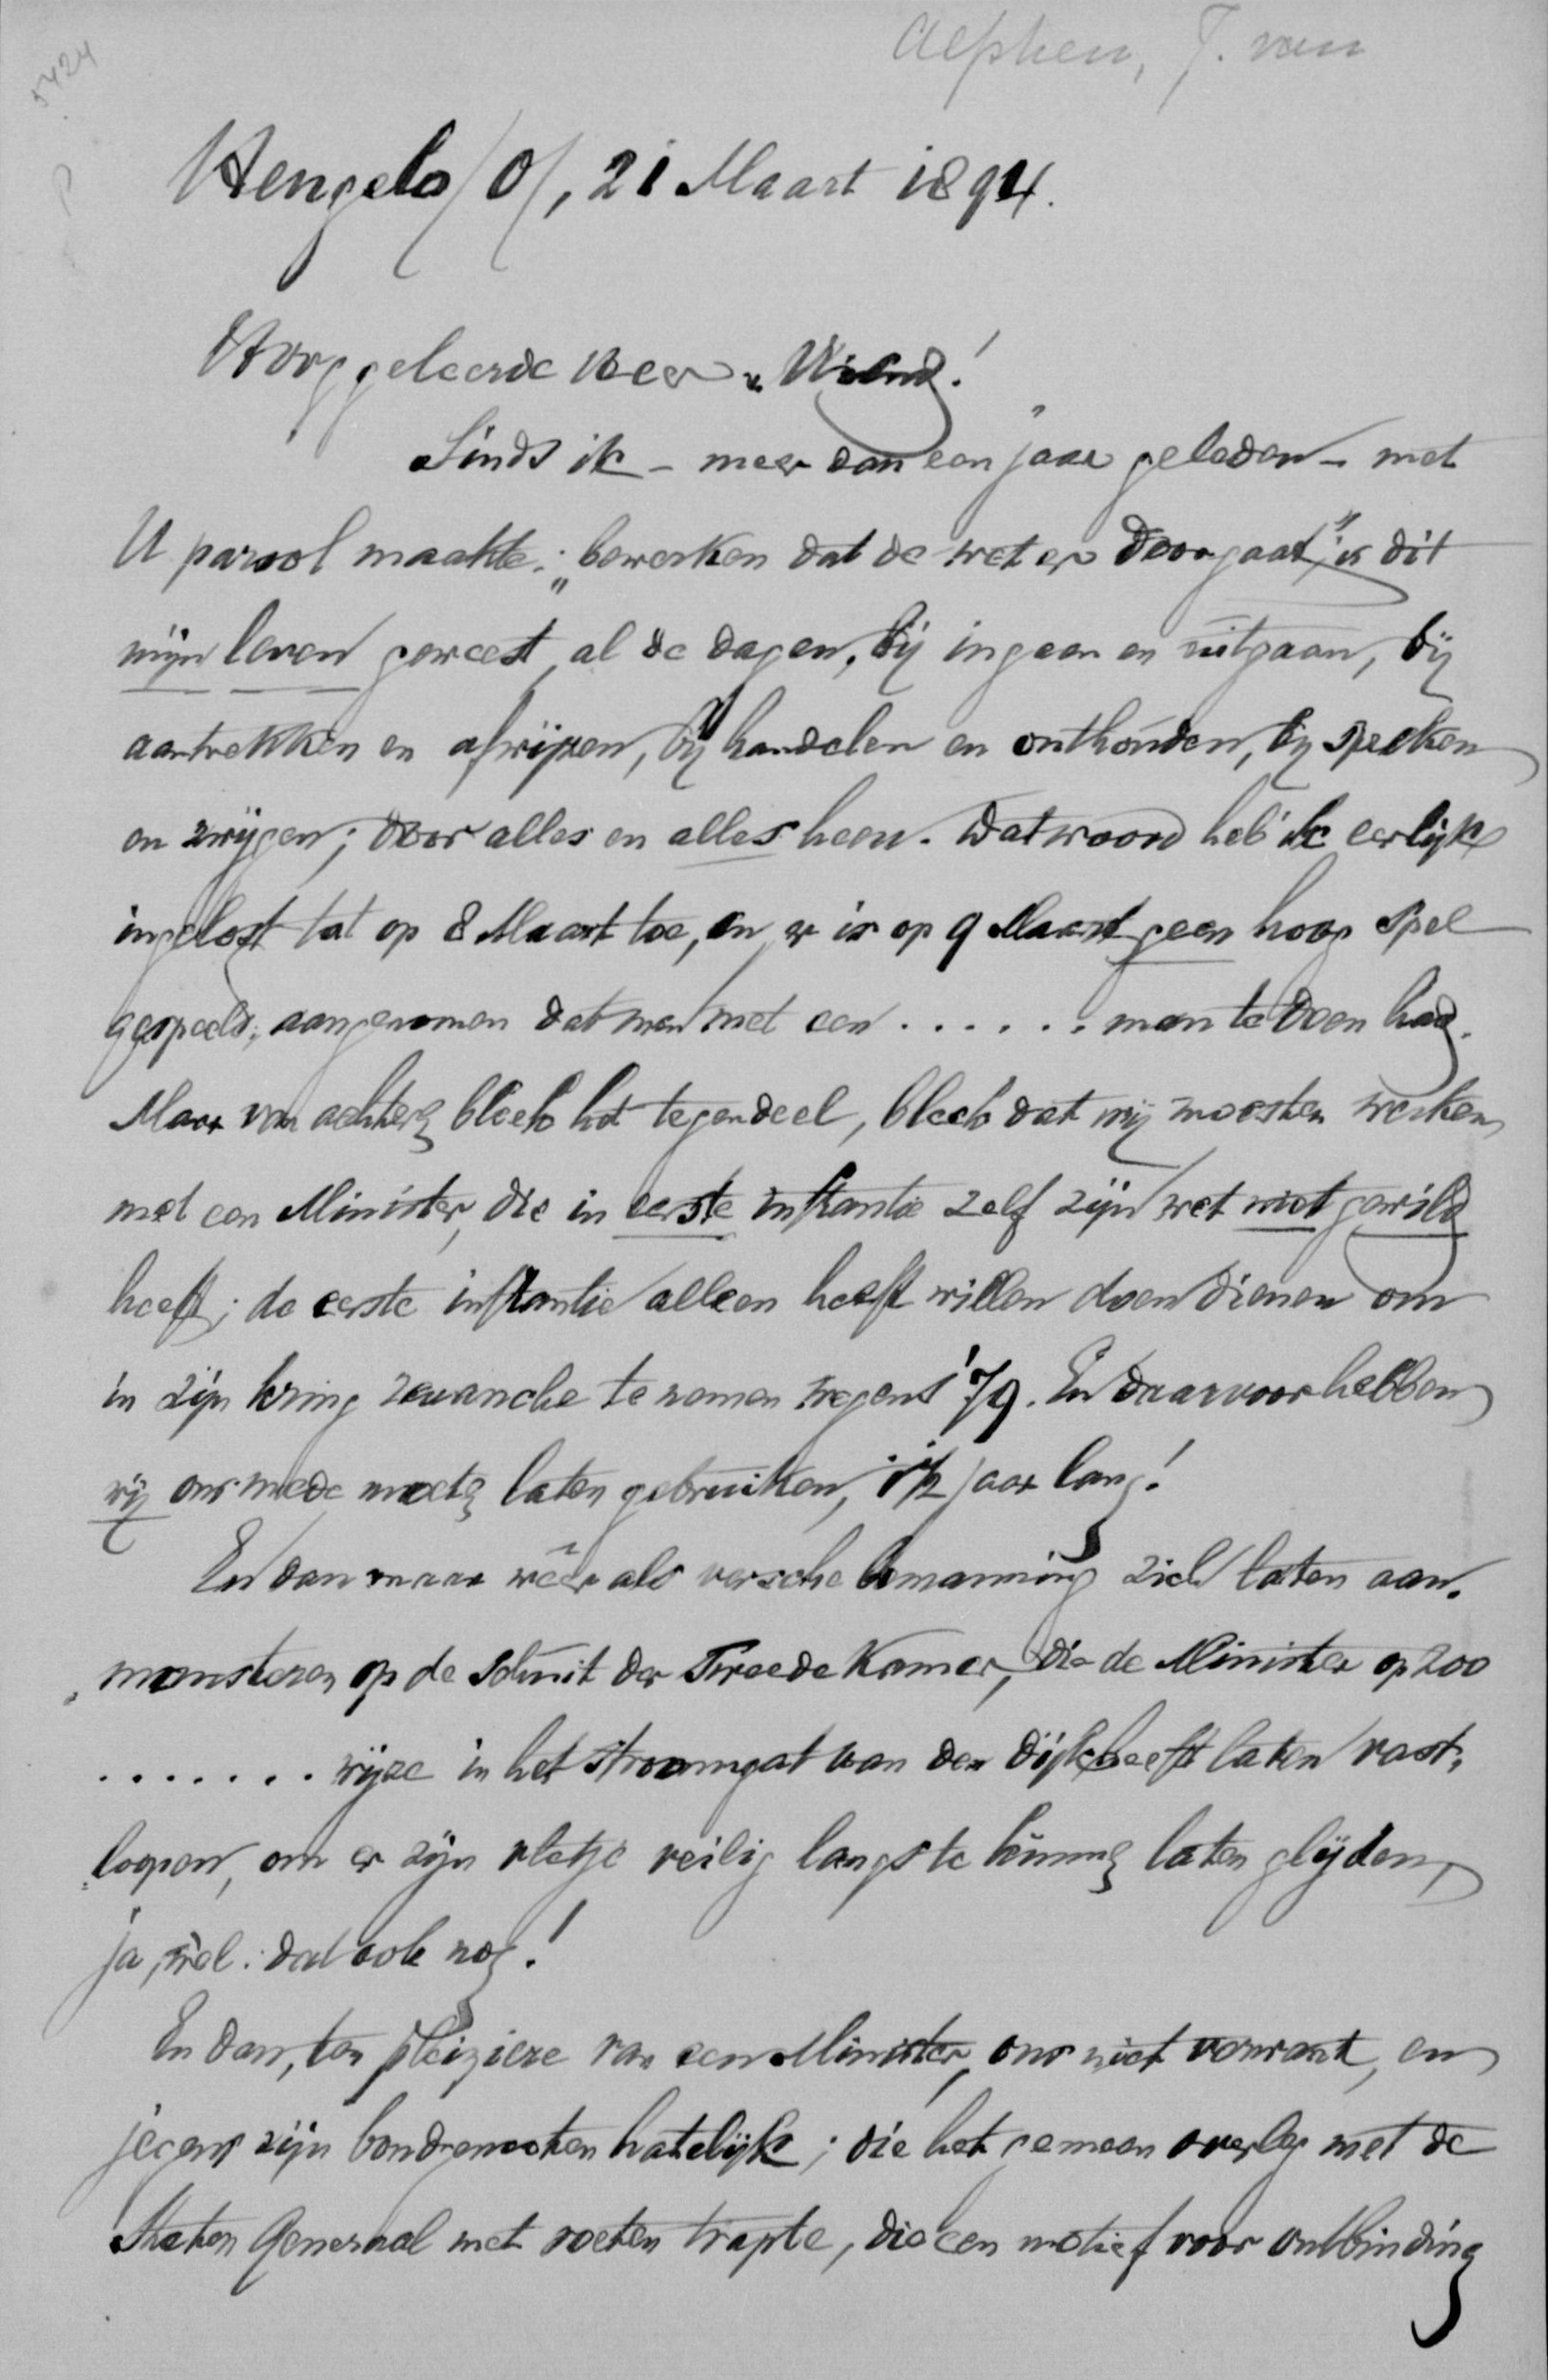 Alphen, J. van
5424
Hengelo /O/, 21 Maart 1894.
Hooggeleerde Heer & Vriend!
Sinds ik – meer dan een jaar geleden – met
U parool maakte: „bewerken dat de wet er doorgaat", is dit
mijn leven geweest, al de dagen, bij ingaan en uitgaan, bij
aantrekken en afwijzen, bij handelen en onthouden, bij spreken
en zwijgen; door alles en alles heen. Dat woord heb ik eerlijk
ingelost tot op 8 Maart toe, en er is op 9 Maart geen hoog spel
gespeeld, aangenomen dat men met een ...... man te doen had.
Maar van achteren bleek het tegendeel, bleek dat wij moesten werken
met een Minister, die in eerste instantie zelf zijn wet niet gewild
heeft; de eerste instantie alleen heeft willen doen dienen om
in zijn kring revanche te nemen wegens '79. En daarvoor hebben
wij ons mede moeten laten gebruiken, jaar lang!
En dan maar wêer als versche bemanning zich laten aan-
monsteren op de schuit der Tweede Kamer, die de Minister op zoo
....... wijze in het stroomgat van den dijk heeft laten vast-
loopen, om er zijn vletje veilig langs te kunnen laten glijden,
ja, wel: dat ook nog!
En dan, ten pleiziere van een Minister, ons niet verwant, en
jegens zijn bondgenooten hatelijk; die het gemeen overleg met de
Staten Generaal met voeten trapte, die een motief voor ontbinding